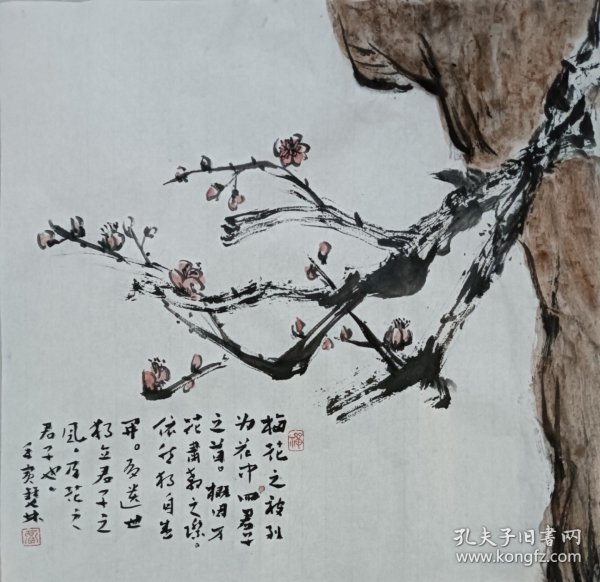 梅花之被列
为花中四君子
之首。概因万
花肃之际。
依然独自
开。有遗世
独立君子之
风。乃花之
君子也。
壬寅
孔夫子旧书网
www.kongfz.com